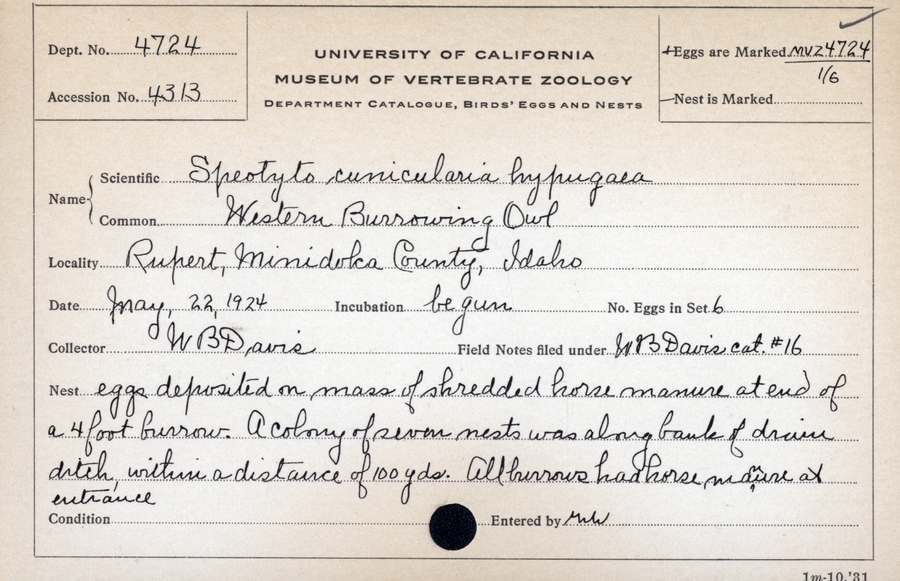 Dept. No. 4724
Accession No. 4313
UNIVERSITY OF CALIFORNIA
MUSEUM OF VERTEBRATE ZOOLOGY
DEPARTMENT CATALOGUE, BIRDS' EGGS AND NESTS
Eggs are Marked MVZ4724
1/6
Nest is Marked
Name
Scientific Speotyto cunicularia hypugaea
Common Western Burrowing Owl
Locality Rupert, Minidoka County, Idaho
Date May, 22, 1924 Incubation begun No. Eggs in Set 6
Collector W B Davis Field Notes filed under W B Davis cat. #16
Nest eggs deposited on mass of shredded horse manure at end of
a 4 foot burrow. A colony of seven nests was along bank of drain
ditch, within a distance of 100 yds. All burrows had horse manure at
entrance
Condition Entered by
1m-10,'31